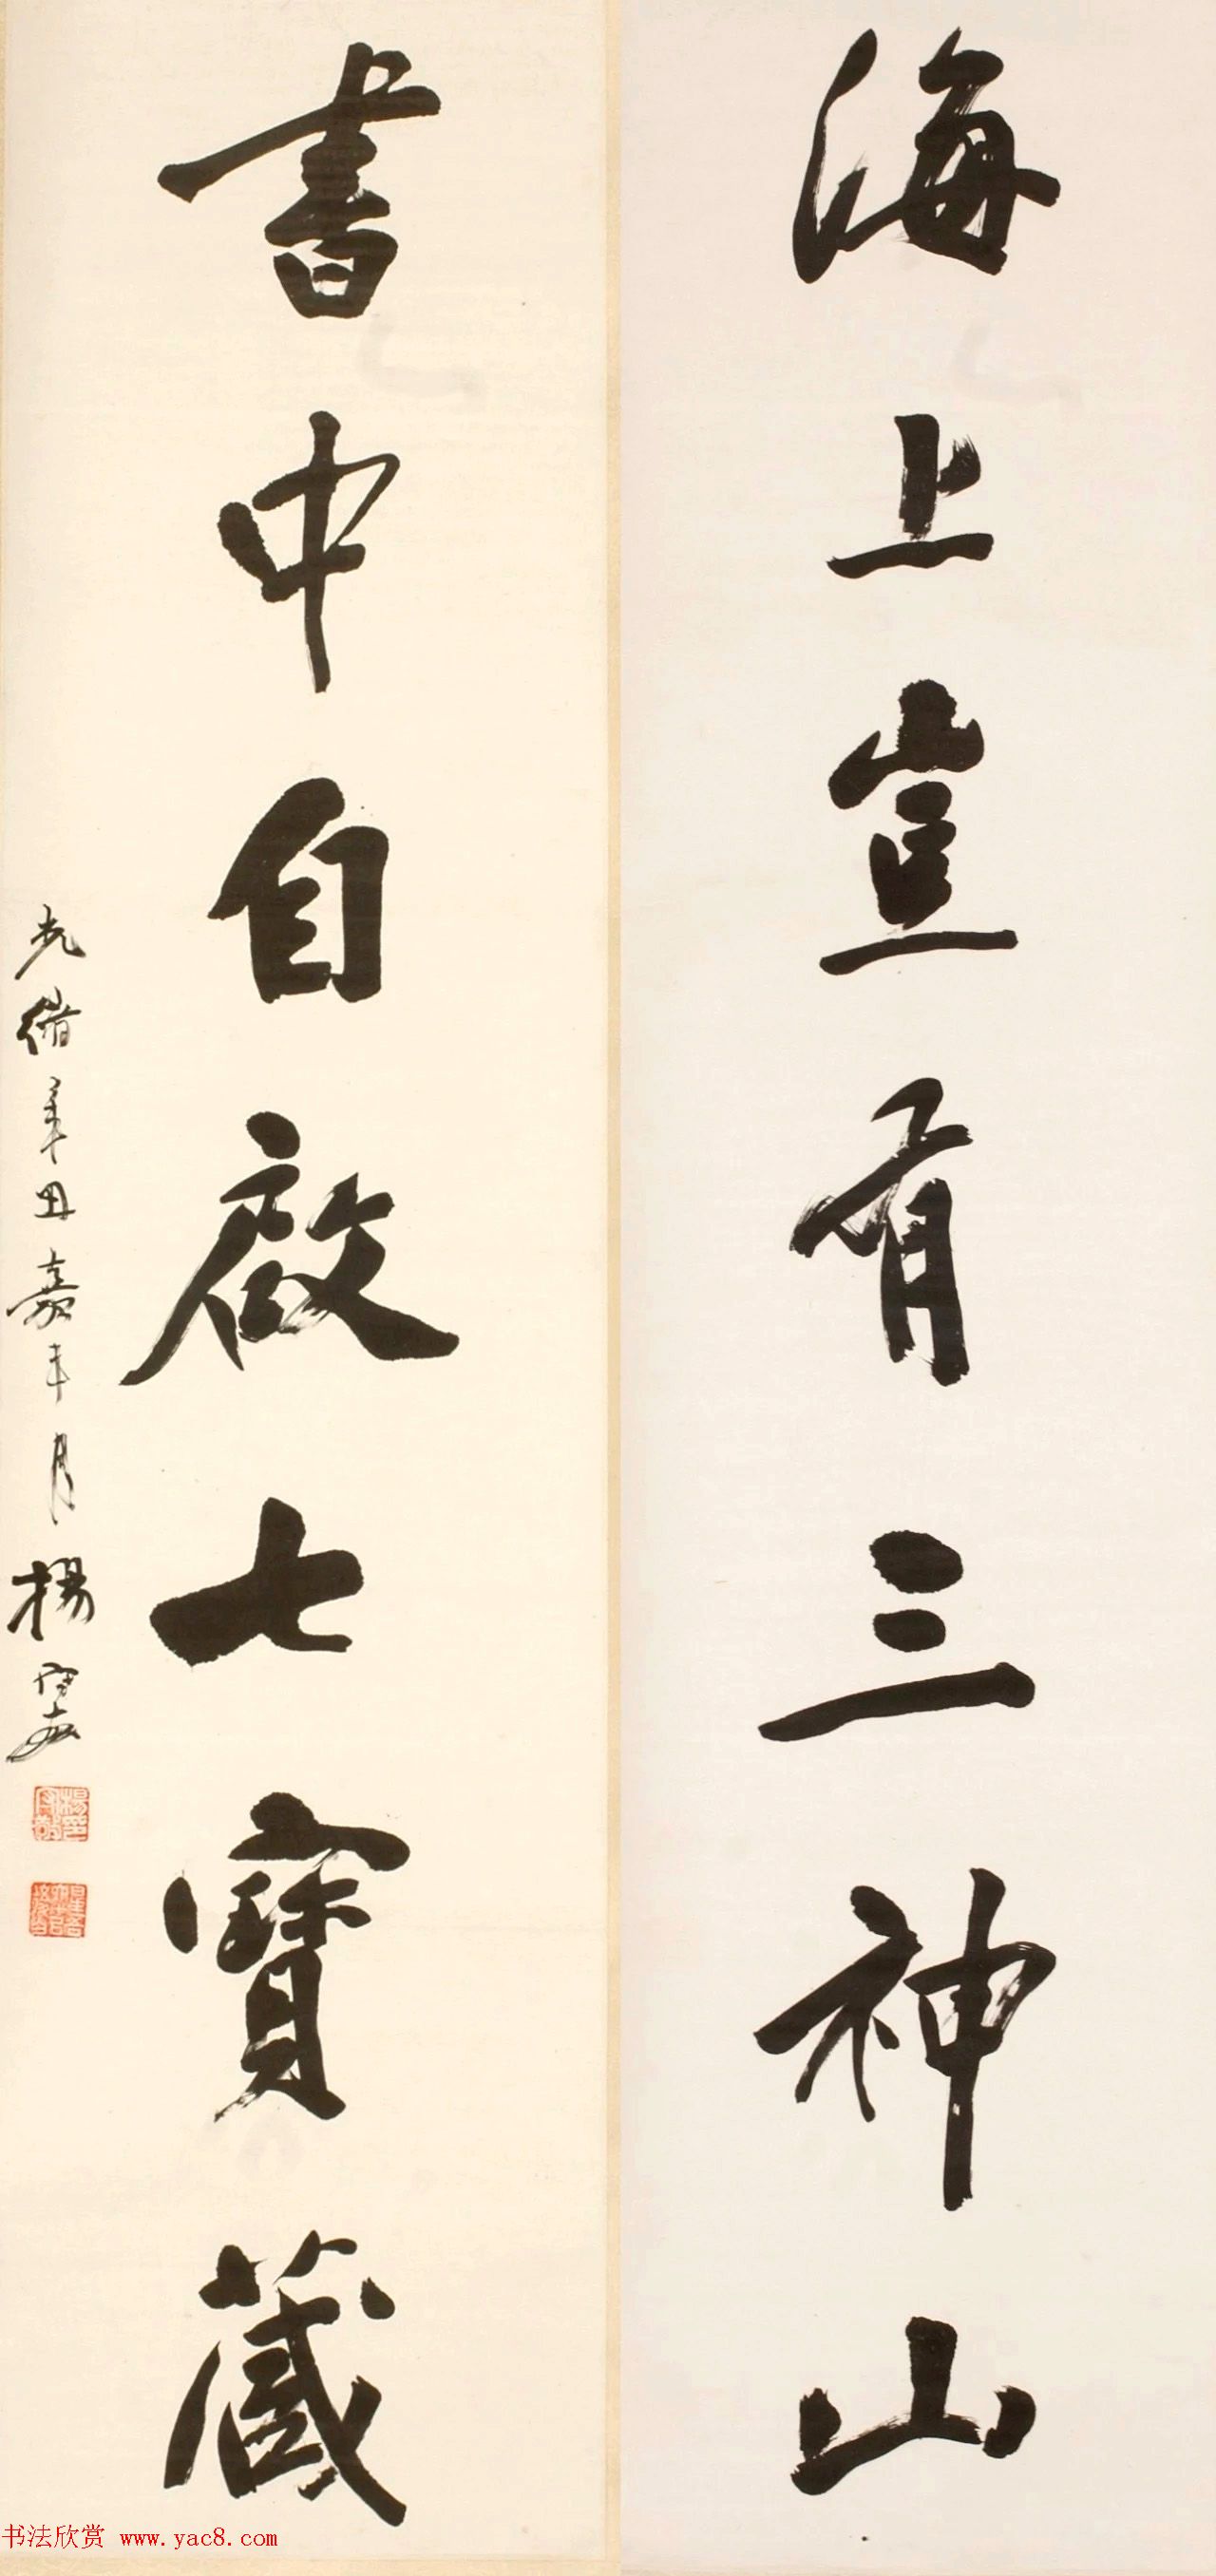 海上豈有三神山
書中自啟七寶藏
光緒辛丑嘉平月楊守敬
書法欣赏 www.yac8.com